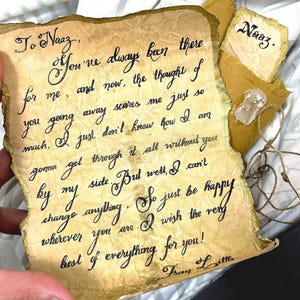 To Naaz,
You've always been there
for me, and now, the thought of
you going away scares me just so
much, I just don't know how I am
gonna get through it all without you
by my side But well, I can't
change anything. So just be happy
wherever you are I wish the very
best of everything for you!
From
Naaz.